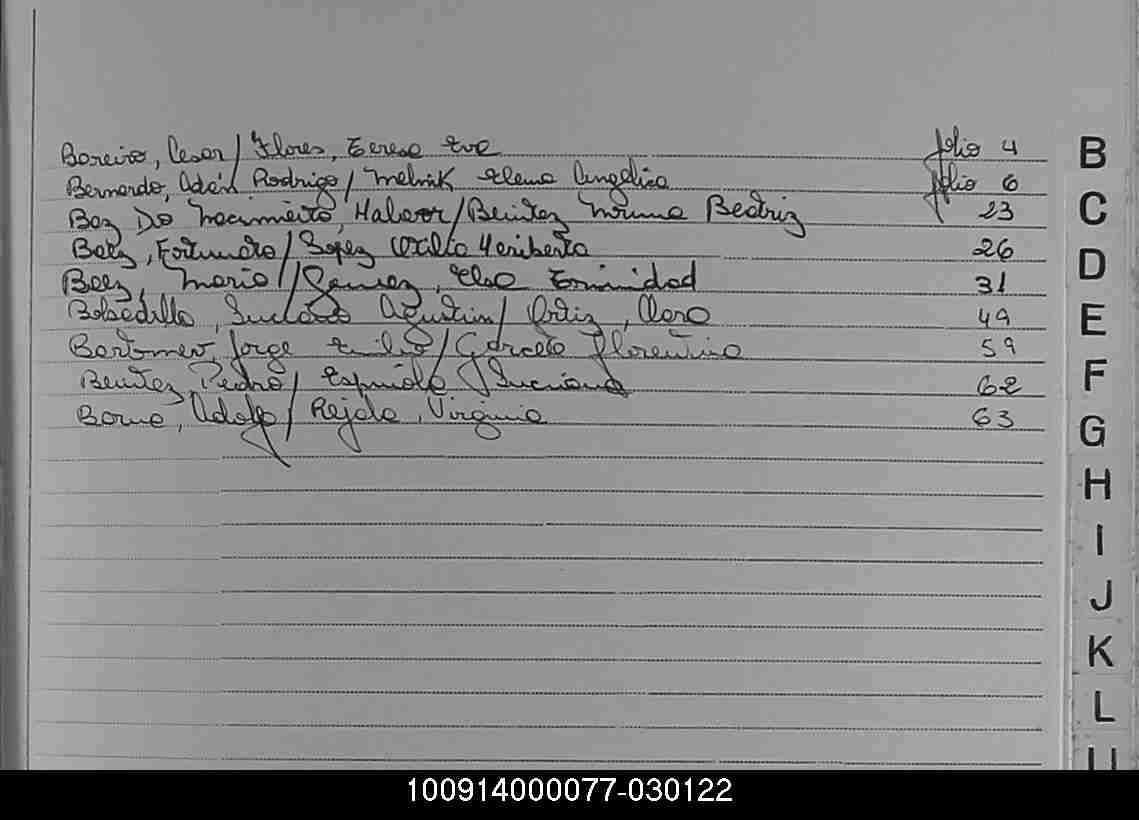 Boreiro, Cesar / Flores, Teresa Eva folio 4
Bernardo, Adán Rodrigo / Melnik Elena Angélica folio 6
Baz Do Nacimieto, / Benitez Norma Beatriz 23
Baez, Fortunato / Lopez Heriberta 26
Baez, Mario / Gomez, Elsa Trinidad 31
Bobadilla, Luciano Agustin / Ortiz, Clara 49
Bartomeo, Jorge Emilio / Garcete Florentina 59
Benitez, Pedro / Espinola Luciana 62
Borne, Adolfo / Rejala, Virginia 63
B
C
D
E
F
G
H
I
J
K
L
100914000077-030122